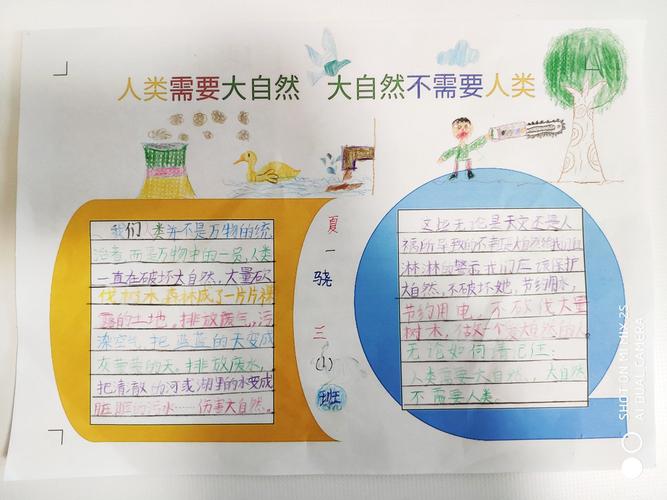 人类需要大自然 大自然不需要人类
我们人类并不是万物的统
治者而是万物中的一员,人类
一直在破坏大自然,大量砍
伐树木,森林成了一片片裸
露的土地。排放废气,污
染空气,把蓝蓝的天变成
灰蒙蒙的天。排放废水,
把清澈的河或湖里的水变成
脏脏的污水……伤害大自然。
夏
一
骁
三
(1)
班
这些无论是天灾还是人
祸所导致的不幸是大自然给我们血
淋淋的警示我们应该保护
大自然,不破坏她,节约用水,
节约用电,不放伐大量
树木,做个爱大自然的人
无论如何请记住:
人类需要大自然,大自然
不需要人类。
SHOT ON MI MIX 2S
AI DUAL CAMERA